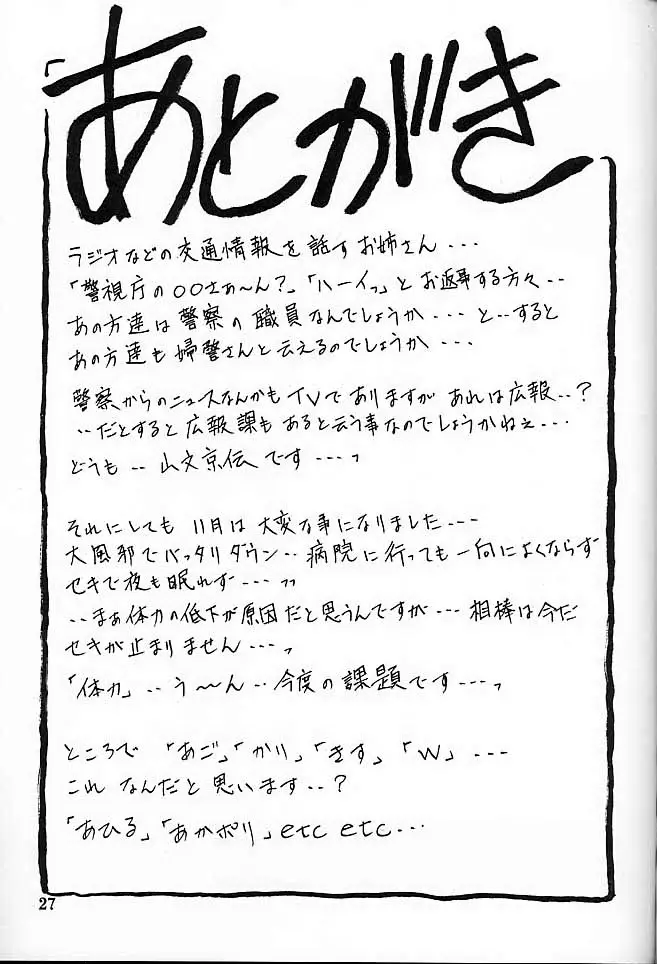 あとがき
ラジオなどの交通情報を話すお姉さん・・・
「警視庁の○○さぁ〜ん?」「ハーイっ」とお返事する方々・・
あの方達は警察の職員なんでしょうか・・・と・・すると
あの方達も婦警さんと云えるのでしょうか・・・
警察からのニュースなんかもTVでありますがあれは広報・・?
・・だとすると広報課もあると云う事なのでしょうかねぇ・・・
どうも・・山文京伝です・・・っ
それにしても11月は大変な事になりました・・・
大風邪でバッタリダウン・・病院に行っても一向によくならず
セキで夜も眠れず・・・っっ
・・まぁ体力の低下が原因だと思うんですが・・・相棒は今だ
セキが止まりません・・・っ
「体力」・・う〜〜ん・・今度の課題です・・・っ
ところで「あご」「かり」「きす」「W」・・・
これなんだと思います・・?
「あひる」「あかポリ」etc etc・・・
27